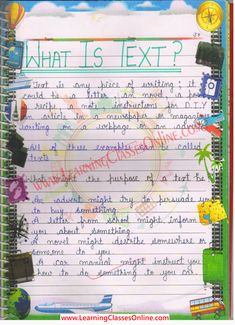 WHAT IS TEXT?
Text is any piece of writing; it
could be a letter, an novel, a poem
recipe a note, instructions for D.I.Y
an article in a newspaper or magazine
writing on a webpage or an advert
All of these examples can be called
texts
What might the purpose of a text be
An advert might try to persuade you
to buy something.
A letter from school might inform
you about something.
A novel might describe somewhere or
someone to you
A car manual might instruct you
how to do something to you car.
www.LearningClassesOnline.com
www.LearningClassesOnline.com